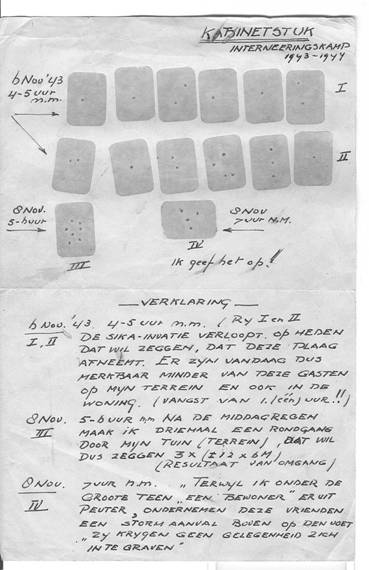 KABINETSTUK
INTERNEERINGSKAMP
1943-1944
6 NOV '43
4-5 UUR
N.M.
I
II
8 NOV.
5-6 UUR
8 NOV
7 UUR N.M.
III
IV
IK GEEF HET OP!
— VERKLARING —
6 NOV. '43. 4-5 UUR N.M. (RY I EN II
I, II
DE SIKA-INVATIE VERLOOPT. OP HEDEN
DAT WIL ZEGGEN, DAT DEZE PLAAG
AFNEEMT. ER ZYN VANDAAG DUS
MERKBAAR MINDER VAN DEZE GASTEN
OP MYN TERREIN EN OOK IN DE
WONING. (VANGST VAN 1. (één) UUR!!)
8 NOV. 5-6 UUR NM NA DE MIDDAGREGEN
III
MAAK IK DRIEMAAL EEN RONDGANG
DOOR MIJN TUIN (TERREIN), DAT WIL
DUS ZEGGEN 3 X (±12 X 6M)
(RESULTAAT VAN OMGANG)
8 NOV. 7 UUR N.M. „TERWYL IK ONDER DE
IV
GROOTE TEEN „EEN BEWONER" ER UIT
PEUTER, ONDERNEMEN DEZE VRIENDEN
EEN STORMAANVAL BOVEN OP DEN VOET
„ZY KRYGEN GEEN GELEGENHEID ZICH
IN TE GRAVEN"